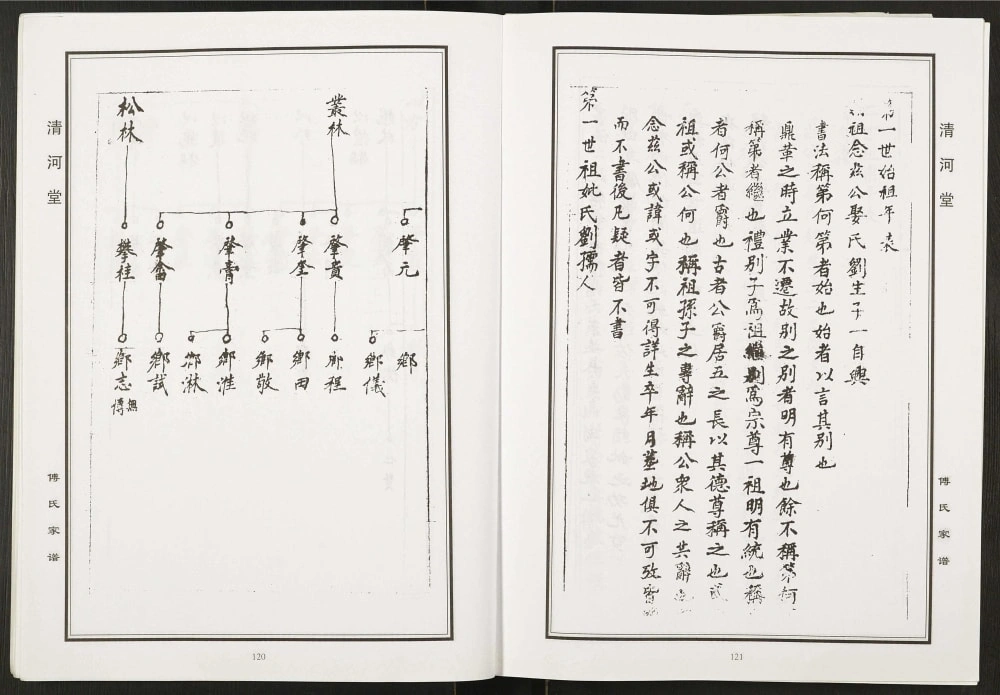 清河堂
傅氏家谱
第一世始祖年表
祖念兹公娶氏劉生子一自興
書法稱第何第者始也始者以言其別也
鼎革之時立業不遷故別之別者明有尊也餘不稱第何
稱第者繼也禮別子爲祖繼別爲宗尊一祖明有統也稱
者何公者爵也古者公爵居五之長以其德尊稱之也或
祖或稱公何也稱祖孫子之專辭也稱公衆人之共辭也
念兹公或諱或字不可得詳生卒年月墓地俱不可攷皆
而不書後凡疑者皆不書
第一世祖妣氏劉孺人
121
叢林
松林
肇元
肇貴
肇奎
肇膏
肇畬
攀桂
鄉
鄉儀
鄉程
鄉田
鄉敬
鄉淮
鄉淋
鄉試
鄉志
無傳
清河堂
傅氏家谱
120